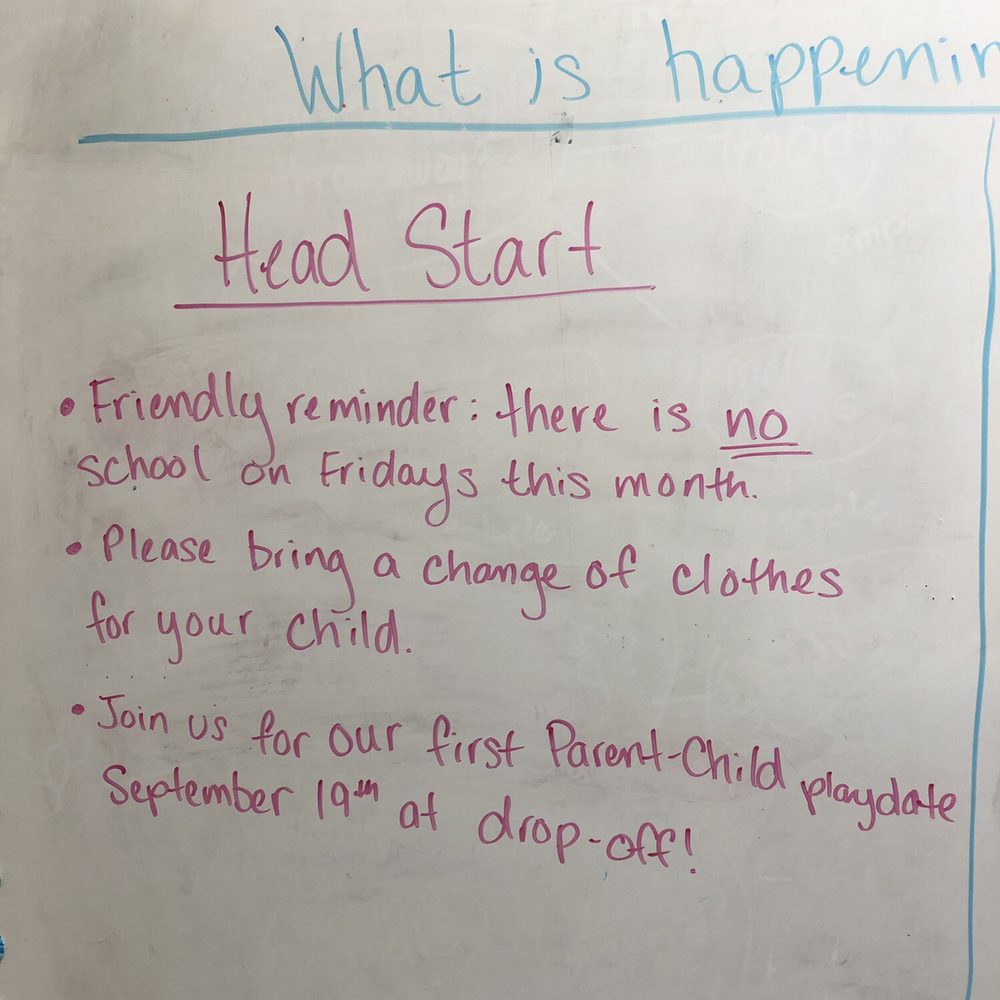 What is happenin
Head Start
• Friendly reminder: there is no
school on Fridays this month.
• Please bring a change of clothes
for your child.
• Join us for our first Parent-Child playdate
September 19th at drop-off!